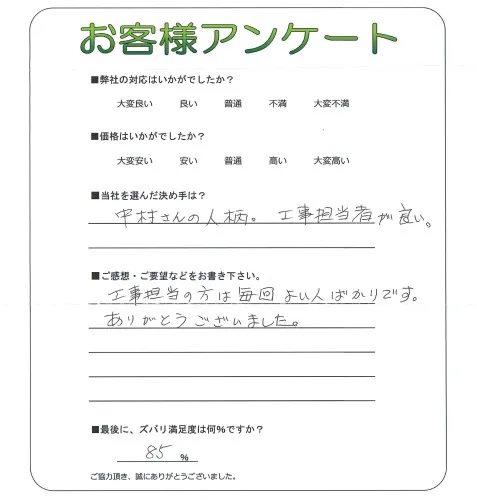 お客様アンケート
■弊社の対応はいかがでしたか？
大変良い 良い 普通 不満 大変不満
■価格はいかがでしたか？
大変安い 安い 普通 高い 大変高い
■当社を選んだ決め手は？
中村さんの人柄。工事担当者が良い。
■ご感想・ご要望などをお書き下さい。
工事担当の方は毎回よい人ばかりです。
ありがとうございました。
■最後に、ズバリ満足度は何%ですか？
85 %
ご協力頂き、誠にありがとうございました。